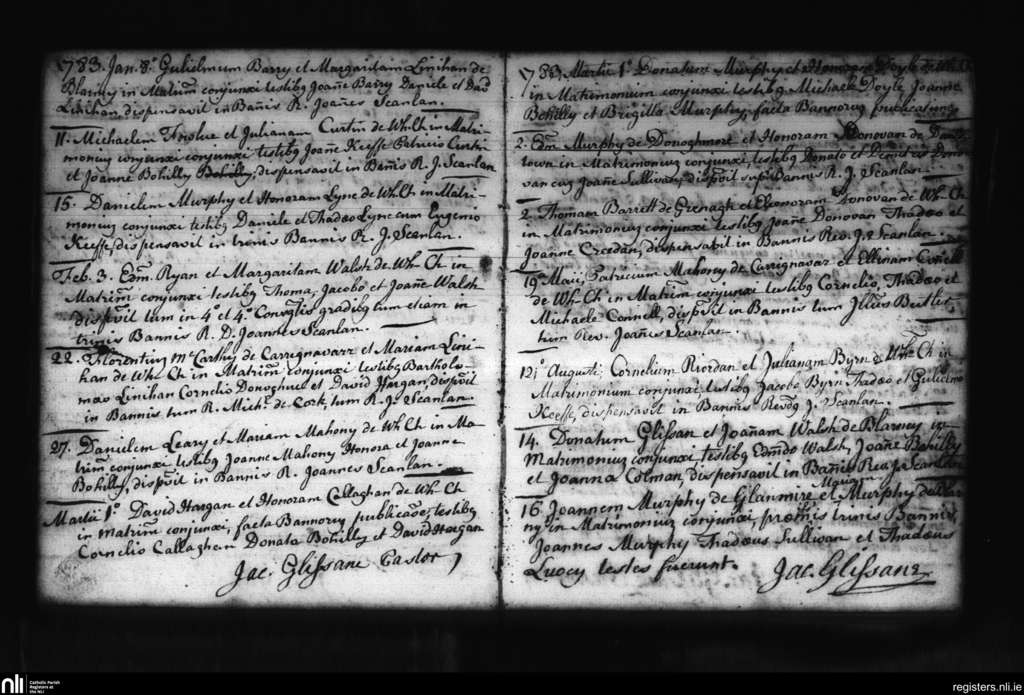 1783. Jan. 8o Gulielmum Barry et Margaritam Linihan de
Blarney in Matrim conjunxi testibq Joañe Barry Daniele et Dad
Linihan, dispensavit in Bañis R. Joañes Scanlan.
11. Michaelem et Julianam Curtin de Wh.Ch in Matri-
monium conjunxi conjunxi testibq Joañe Keeffe Patricio Curtin
et Joanne Bohilly Bohilly, dispensavit in Bañis R. J. Scanlan
15. Danielem Murphy et Honoram Lyne de Wh.Ch in Matri-
monium conjunxi testibq Daniele et Thadæo Lyne cum Eugenio
Keeffe, dispensavit in trinis Bannis R. J. Scanlan.
Feb. 3. Edm Ryan et Margaritam Walsh de Wh Ch in
Matrim conjunxi testibq Thoma, Jacobo et Joañe Walsh
dispvit tum in 4 et 4o gradibq tum etiam in
trinis Bannis R. D. Joannes Scanlan.
22. Florentium McCarthy de Carrignavarr et Mariam Lini-
han de Wh Ch in Matrim conjunxi testibq Bartholo-
mæo Linihan Cornelio Donoghue et David Horgan dispvit
in Bannis tum R. Mich. de Cork, tum R. J. Scanlan.
27. Danielem Leary et Mariam Mahony de Wh Ch in Ma-
trim conjunxi testibq Joanne Mahony Honora et Joanne
Bohilly, dispvit in Bannis R. Joannes Scanlan.
Martii 1o David Horgan et Honoram Callaghan de Wh Ch
in matrim conjunxi, facta Bannorum publicaõe, testibq
Cornelio Callaghan Donato Bohilly et David Horgan
Jac. Glissane Pastor
1783, Martii 1o Donatum Murphy et Honoram Doyle de Wh Ch
in Matrimonium conjunxi testibq Michaele Doyle Joanne
Bohilly et Brigitta Murphy, facta Bannorum publicatione
2. Edm Murphy de Donoghmore et Honoram Donovan de
town in Matrimonium conjunxi, testibq Donato et Demetrio Dono
van cum Joañe Sullivan, dispvit Bannis R. J. Scanlan.
2. Thomam Barrett de Grenagh et Eleonoram Donovan de Wh Ch
in Matrimonium conjunxi testibq Joañe Donovan Thadæo et
Joanne Creedan, dispensavit in Bannis Rev. J. Scanlan.
19 Maii, Patricium Mahony de Carrignavar et Ellenam Conell
de Wh Ch in Matrim conjunxi testibq Cornelio, Thadæo et
Michaele Connell, dispvit in Bannis tum Julius Butler
tum Rev. Joañes Scanlan.
12o Augusti Cornelium Riordan et Julianam Byrn e Wh Ch in
Matrimonium conjunxi, testibq Jacobo Byrn Thadæo et Gulielmo
Keeffe, dispensavit in Bannis J. Scanlan.
14. Donatum Glissan et Joañam Walsh de Blarney in
Matrimonium conjunxi testibq Edmdo Walsh, Joañe Bohilly
et Joanna Colman, dispensavit in Bañis Rev J. Scanlan
Mariam
16 Joannem Murphy de Glanmire et Murphy de Blar
ny in Matrimonium conjunxi, trinis Bannis,
Joannes Murphy Thadæus Sullivan et Thadæus
Lucey testes fuerunt.
Jac. Glissane
nli
Catholic Parish
Registers at
the NLI
registers.nli.ie